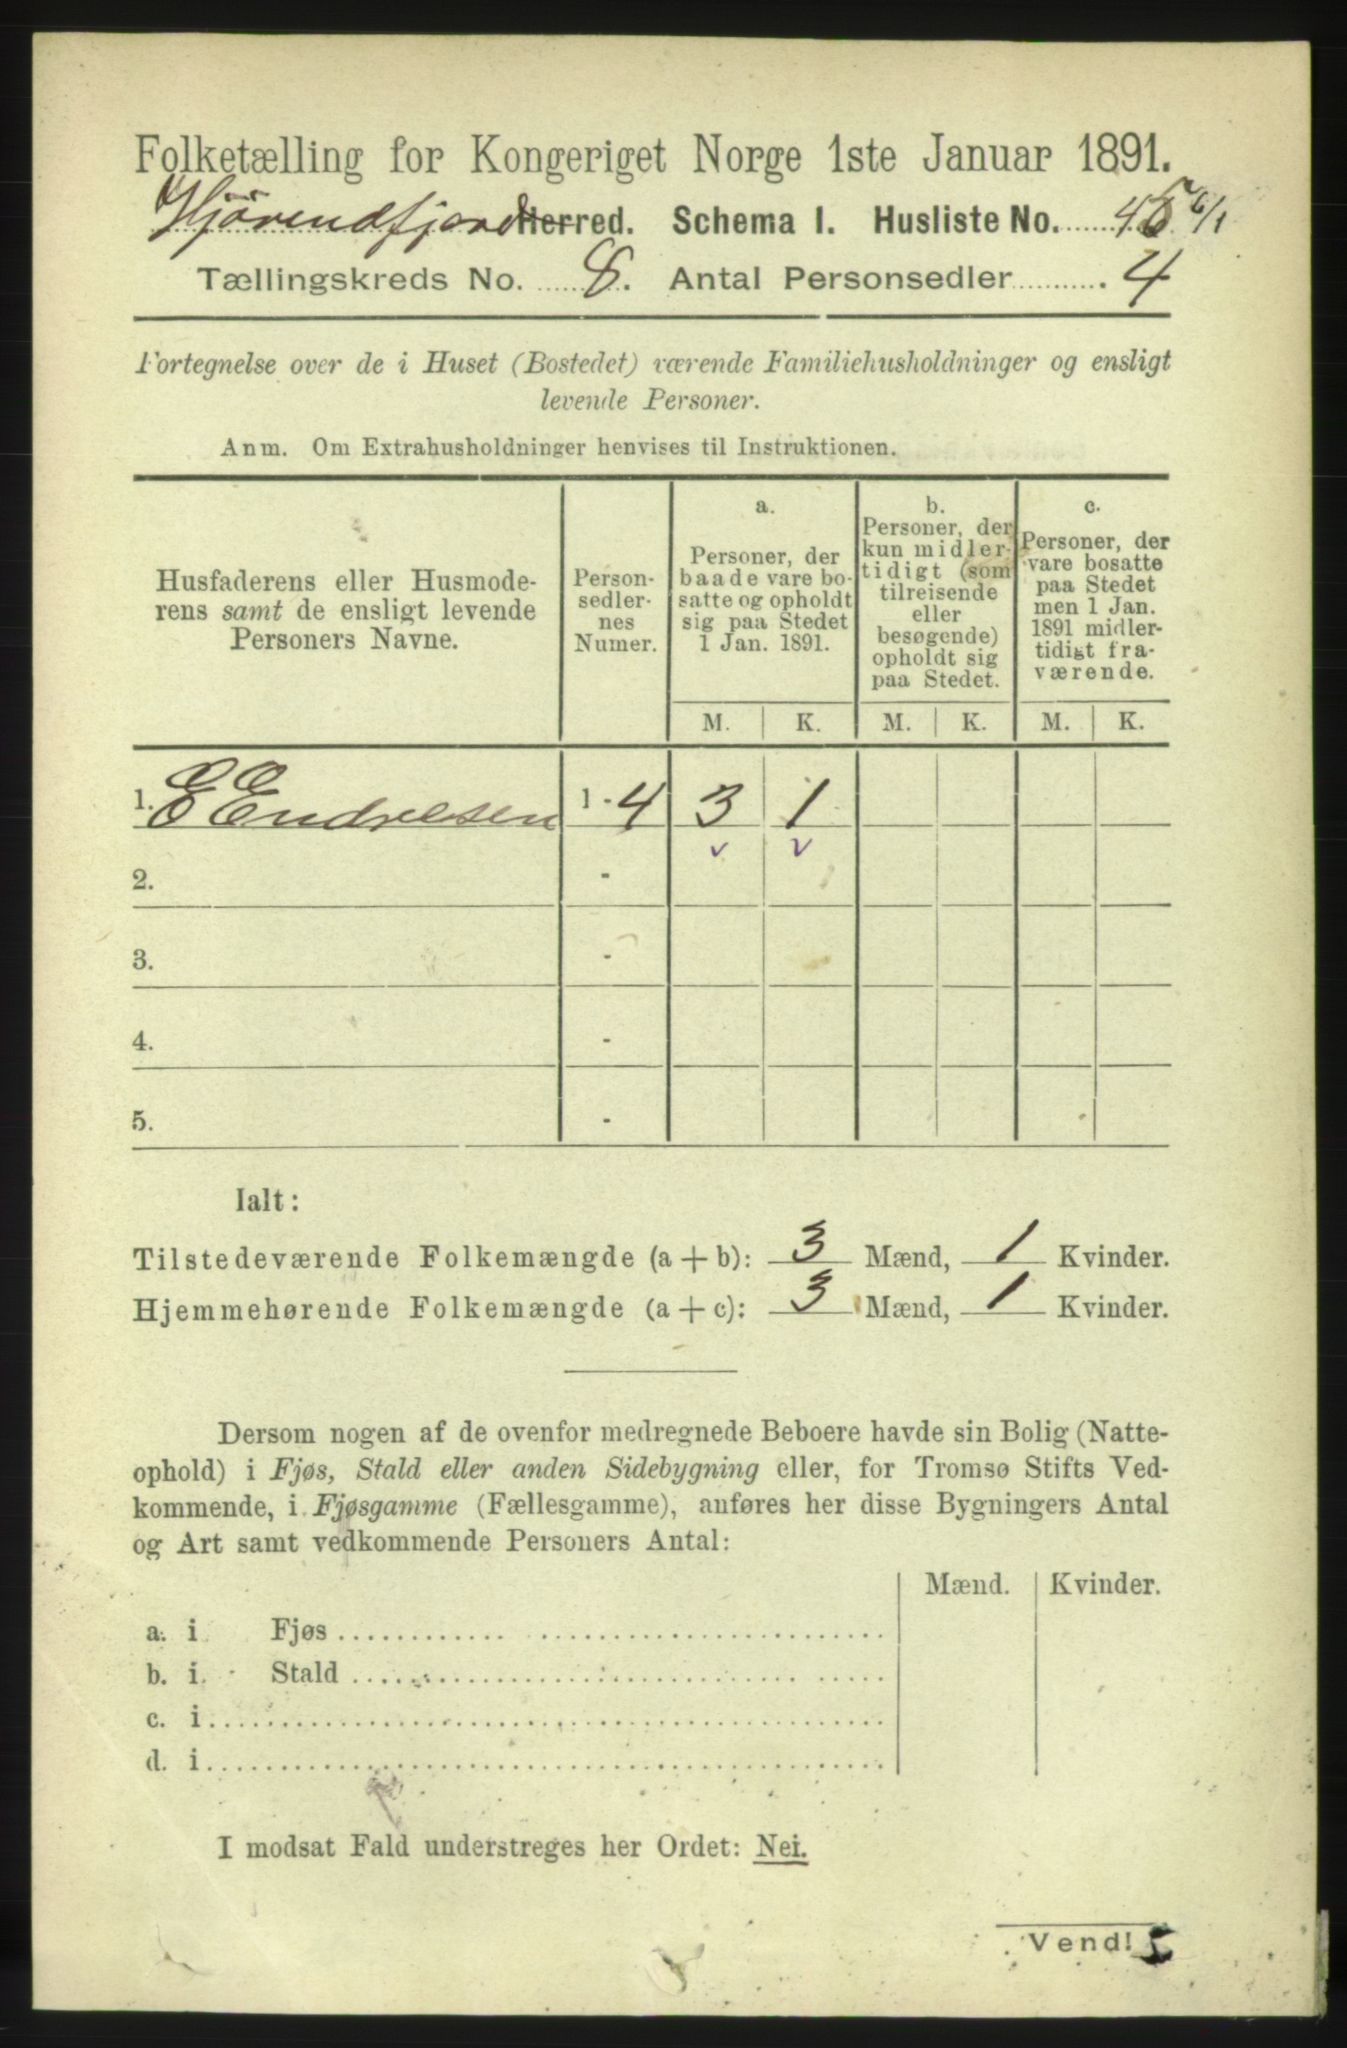 Folketælling for Kongeriget Norge 1ste Januar 1891.
Hjörendfjord Herred. Schema I. Husliste No.
Tællingskreds No. 8. Antal Personsedler 4
Fortegnelse over de i Huset (Bostedet) værende Familiehusholdninger og ensligt
levende Personer.
Anm. Om Extrahusholdninger henvises til Instruktionen.
Husfaderens eller Husmode-
rens samt de ensligt levende
Personers Navne.
Person-
sedler-
nes
Numer.
a.
Personer, der
baade vare bo-
satte og opholdt
sig paa Stedet
1 Jan. 1891.
b.
Personer, der
kun midler-
tidigt (som
tilreisende
eller
besøgende)
opholdt sig
paa Stedet.
c.
Personer, der
vare bosatte
paa Stedet
men 1 Jan.
1891 midler-
tidigt fra-
værende.
M. K. M. K. M. K.
1. E Endresen 1 - 4 3 1
2. -
3. -
4. -
5. -
Ialt:
Tilstedeværende Folkemængde (a + b): 3 Mænd, 1 Kvinder.
Hjemmehørende Folkemængde (a + c): 3 Mænd, 1 Kvinder.
Dersom nogen af de ovenfor medregnede Beboere havde sin Bolig (Natte-
ophold) i Fjøs, Stald eller anden Sidebygning eller, for Tromsø Stifts Ved-
kommende, i Fjøsgamme (Fællesgamme), anføres her disse Bygningers Antal
og Art samt vedkommende Personers Antal:
Mænd. Kvinder.
a. i Fjøs
b. i Stald
c. i
d. i
I modsat Fald understreges her Ordet: Nei.
Vend!